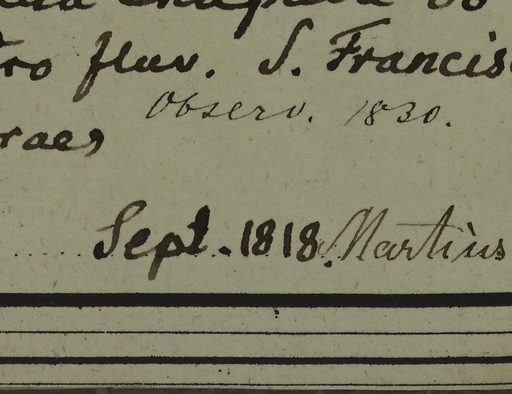 Chapada do
fluv. S. Francis
Observ. 1830.
raes
Sept. 1818. Martius